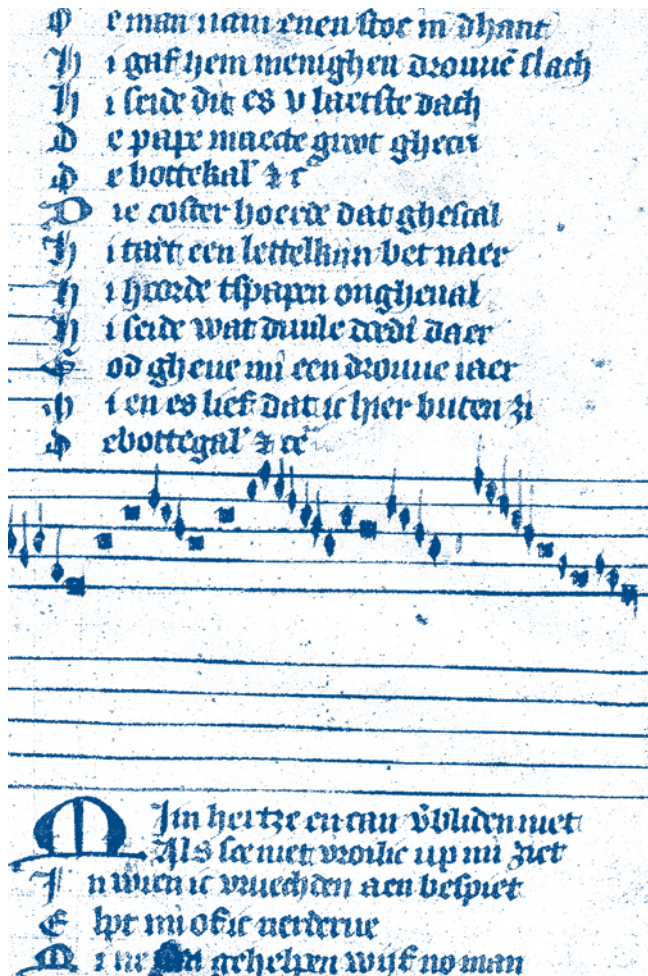 D e man nam enen stoc in dhant
H i gaf hem menighen drouuē slach
H i seide dit es v laetste dach
D e pape maecte groot gheen
D e bottekal' ⁊ c̄
D ie coster hoerde dat ghescal
H i tart een lettelkijn bet naer
H i hoorde tspapen ongheual
H i seide wat duule deedi daer
G od gheue mi een drouue iaer
M i en es lief dat ic hier buten zi
D ebottegal' ⁊ cē
M Iin hertze en can v̄bliden niet
Als soe niet vroilic up mi ziet
I n wien ic vruechden aen bespiet
E lpt mi ofic verderue
M i ne can gehelpen wijf no man